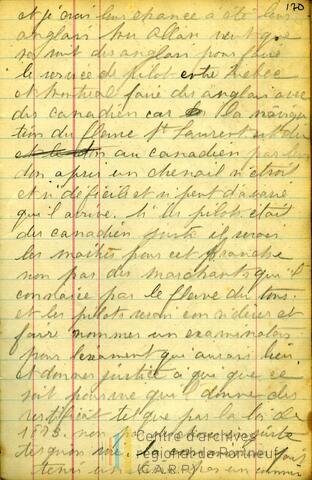 170
et je crois leur chance a été leur
anglais Sou Allan veut que
se soit des anglais pour faire
le service de pilot entre Quebec
et Montreal faire des anglais avec
des canadien car la navigu
tion du fleuve St Laurent est du
au canadien par leur
don apris un chenail n'etroit
et si dificile et si peut d'avarie
qu'il arrive. Si les pilots était
des canadien juste il serai
les maitres pour cet branche
non pas des marchants qu'il
connaise pas le fleuve du tous.
et les pilots serai considerer et
faire nommer un examinateur
pour l'exament qui aurais lieu
et donner justice a qui que ce
soit pourvue qu'il donne des
certificat tel que par la loi de
1873. non pas
des quon
tenir un
Centre d'archives
régional de Portneuf
(C.A.R.P.)